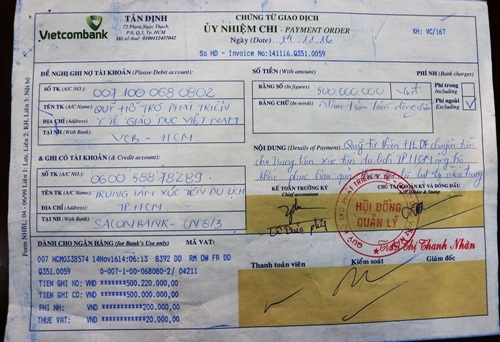 Vietcombank
TÂN ĐỊNH
72 Phạm Ngọc Thạch,
P.6, Q.3, Tp. HCM
Mã số thuế: 0100112437042
CHỨNG TỪ GIAO DỊCH
ỦY NHIỆM CHI - PAYMENT ORDER
Ngày (Date) 14.11.16
KH: VC/16T
So HD - Invoice No:141116.Q351.0059
ĐỀ NGHỊ GHI NỢ TÀI KHOẢN (Please Debit account):
SỐ TK (A/C No) 007 100 068 0802
TÊN TK (A/C Name) QUỸ HỖ TRỢ PHÁT TRIỂN
ĐỊA CHỈ (Address) Y TẾ GIÁO DỤC VIỆT NAM
TẠI NH (With Bank) VCB - HCM
SỐ TIỀN (With amount)
PHÍ NH (Bank charges)
BẰNG SỐ (In figures) 500 000 000
Phí trong Including
BẰNG CHỮ (In words) Năm trăm triệu đồng chẵn
Phí ngoài Excluding
& GHI CÓ TÀI KHOẢN (& Credit account):
SỐ TK (A/C No) 0600 5887 8289
TÊN TK (A/C Name) TRUNG TÂM XÚC TIẾN DU LỊCH
ĐỊA CHỈ (Address) TP HCM
TẠI NH (With Bank) SACOMBANK - CN Q/3
NỘI DUNG (Details of Payment)
KẾ TOÁN TRƯỞNG KÝ
Chief accountant
CHỦ TÀI KHOẢN KÝ VÀ ĐÓNG DẤU
HỘI ĐỒNG
QUẢN LÝ
Thị Thanh Nhàn
DÀNH CHO NGÂN HÀNG (for Bank's Use only)
MÃ VAT:
Thanh toán viên
Kiểm soát
Giám đốc
007 HCM0338574 14Nov1614:06:13 8392 DD RM OW FR DD
Q351.0059 0-007-1-00-068080-2/ 04211
TIEN GHI NO: VND *****500,220,000.00
TIEN GHI CO: VND *****500,000,000.00
PHI NH: VND *********200,000.00
THUE VAT: VND **********20,000.00